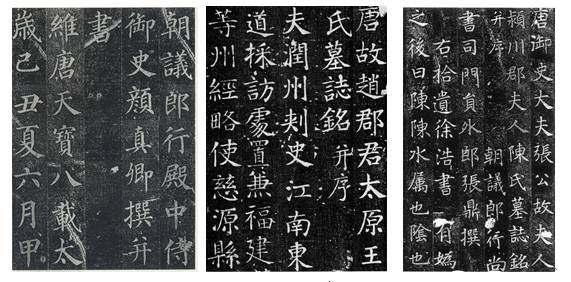 朝議郎行殿中侍
御史顏真卿撰并
書
維唐天寶八載太
歲己丑夏六月甲
唐故趙郡君太原王
氏墓誌銘并序
夫潤州刾史江南東
道採訪處置兼福建
等州經略使慈源縣
唐御史大夫張公故夫人
潁川郡夫人陳氏墓誌銘
并序 朝議郎行尚
書司門貟外郎張鼎撰
右拾遺徐浩書 有媯
之後曰陳陳水屬也陰也